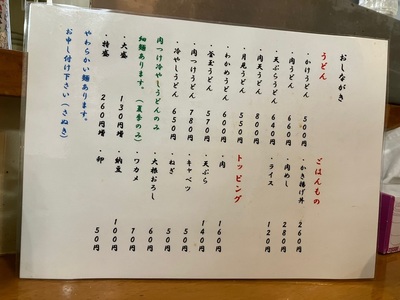 おしながき
うどん
・かけうどん 500円
・肉うどん 660円
・天ぷらうどん 640円
・肉天うどん 800円
・月見うどん 550円
・わかめうどん 600円
・釜玉うどん 570円
・肉つけうどん 780円
・冷やしうどん 650円
肉つけ冷やしうどんのみ
細麺あります。(夏季のみ)
・大盛 130円増
・特盛 260円増
やわらかい麺あります。
お申し付け下さい(さぬき)
ごはんもの
・かき揚げ丼 260円
・肉めし 280円
・ライス 120円
トッピング
・肉 160円
・天ぷら 140円
・キャベツ 50円
・ねぎ 50円
・大根おろし 60円
・ワカメ 70円
・納豆 100円
・卵 50円